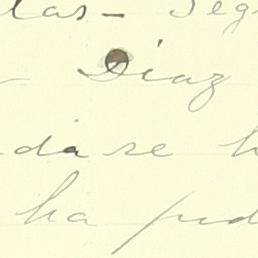 las - Seg
Diaz
da se h
ha pud